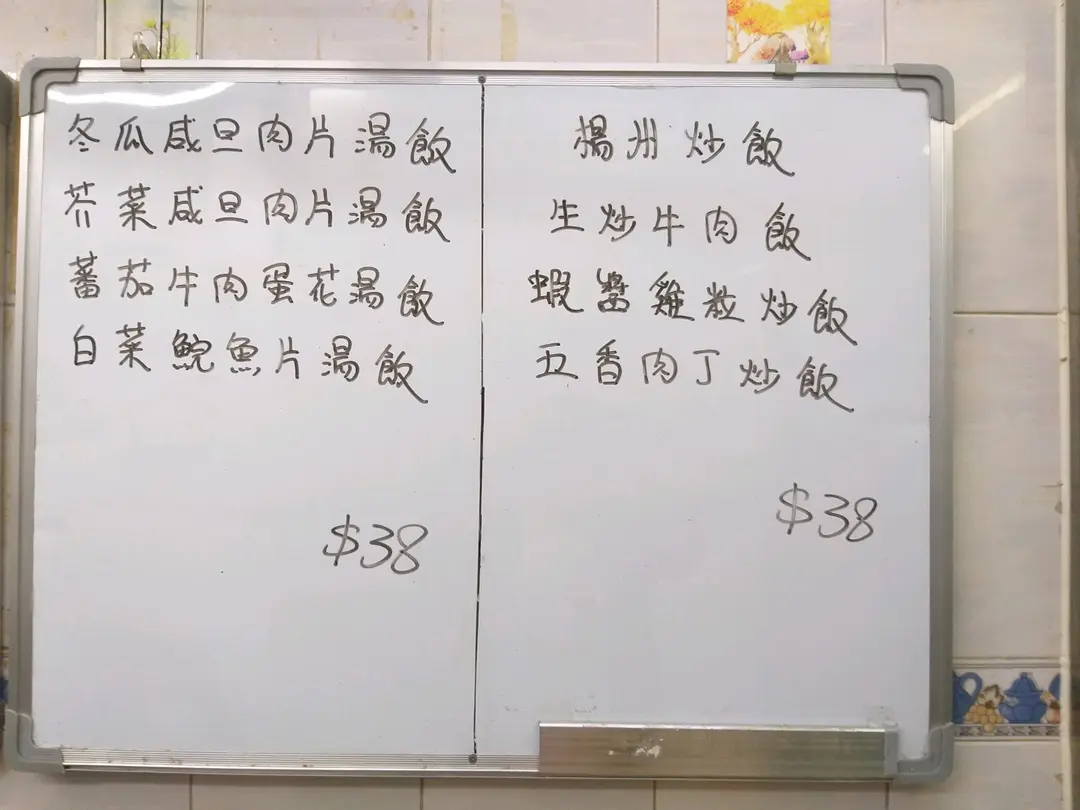 冬瓜咸旦肉片湯飯
芥菜咸旦肉片湯飯
蕃茄牛肉蛋花湯飯
白菜鯇魚片湯飯
$38
揚州炒飯
生炒牛肉飯
蝦醬雞粒炒飯
五香肉丁炒飯
$38